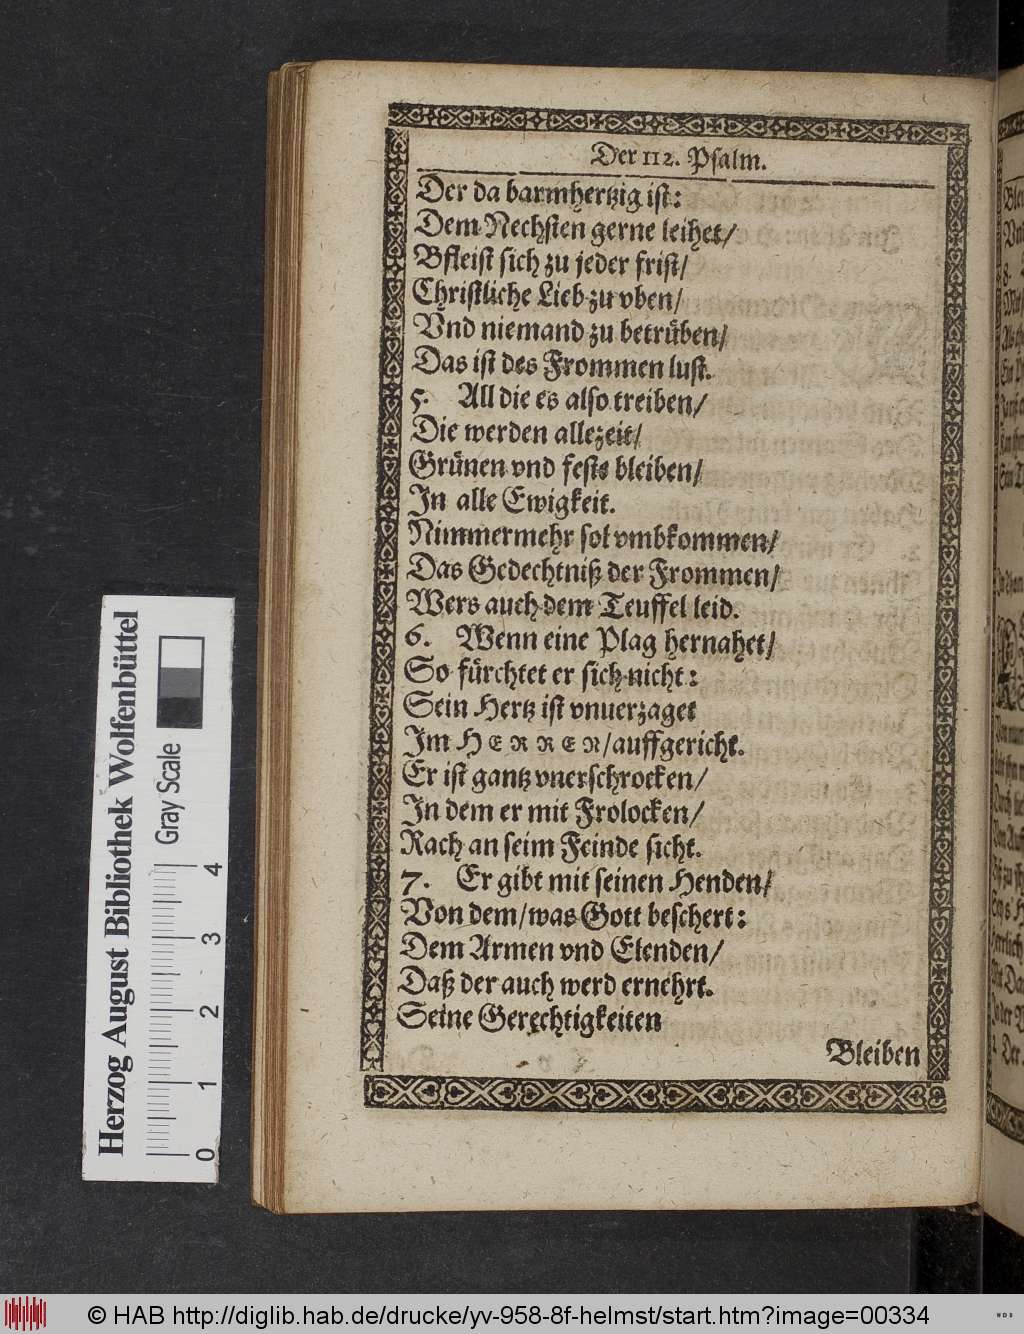 Der 112. Psalm.
Der da barmhertzig ist:
Dem Nechsten gerne leihet/
Bfleist sich zu jeder frist/
Christliche Lieb zu vben/
Vnd niemand zu betrüben/
Das ist des Frommen lust.
5. All die es also treiben/
Die werden allezeit/
Grünen vnd fests bleiben/
In alle Ewigkeit.
Nimmermehr sol vmbkommen/
Das Gedechtniß der Frommen/
Wers auch dem Teuffel leid.
6. Wenn eine Plag hernahet/
So fürchtet er sich nicht:
Sein Hertz ist vnuerzaget
Im HERREN/auffgericht.
Er ist gantz vnerschrocken/
In dem er mit Frolocken/
Rach an seim Feinde sicht.
7. Er gibt mit seinen Henden/
Von dem/was Gott beschert:
Dem Armen vnd Elenden/
Daß der auch werd ernehrt.
Seine Gerechtigkeiten
Bleiben
Herzog August Bibliothek Wolfenbüttel
Gray Scale
0 1 2 3 4
© HAB http://diglib.hab.de/drucke/yv-958-8f-helmst/start.htm?image=00334